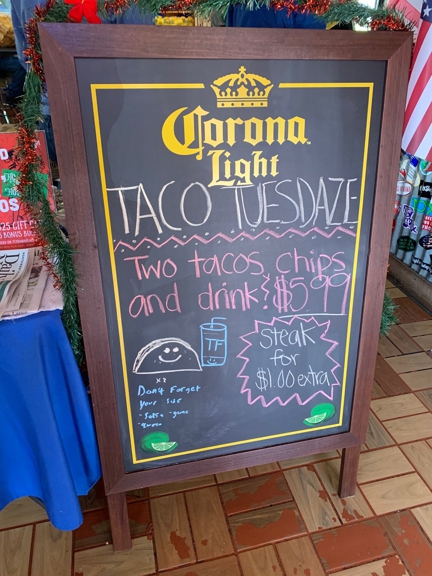 Corona
Light
TACO TUESDAZE
Two tacos, chips
and drink! $5.99
steak
for
$1.00 extra
TF
x2
Don't Forget
your
- Salsa - guac
- Queso
$25 GIFT
BONUS
Daily